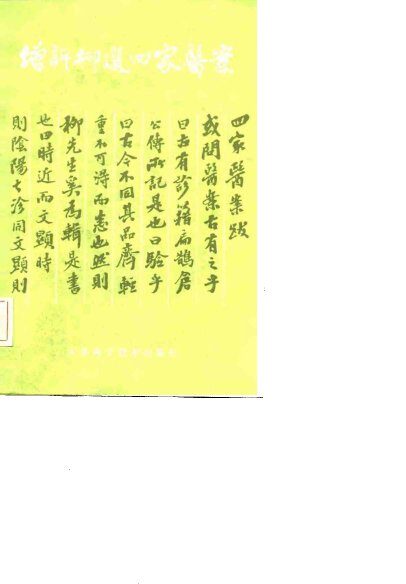 增評柳選四家醫案
四家醫案跋
或問醫案古有之乎
曰古有診籍扁鵲倉
公傳所記是也曰驗乎
曰古今不同其品齊輕
重不可得而悉也然則
柳先生奚爲輯是書
也曰時近而文顯時
則陰陽七診同文顯則